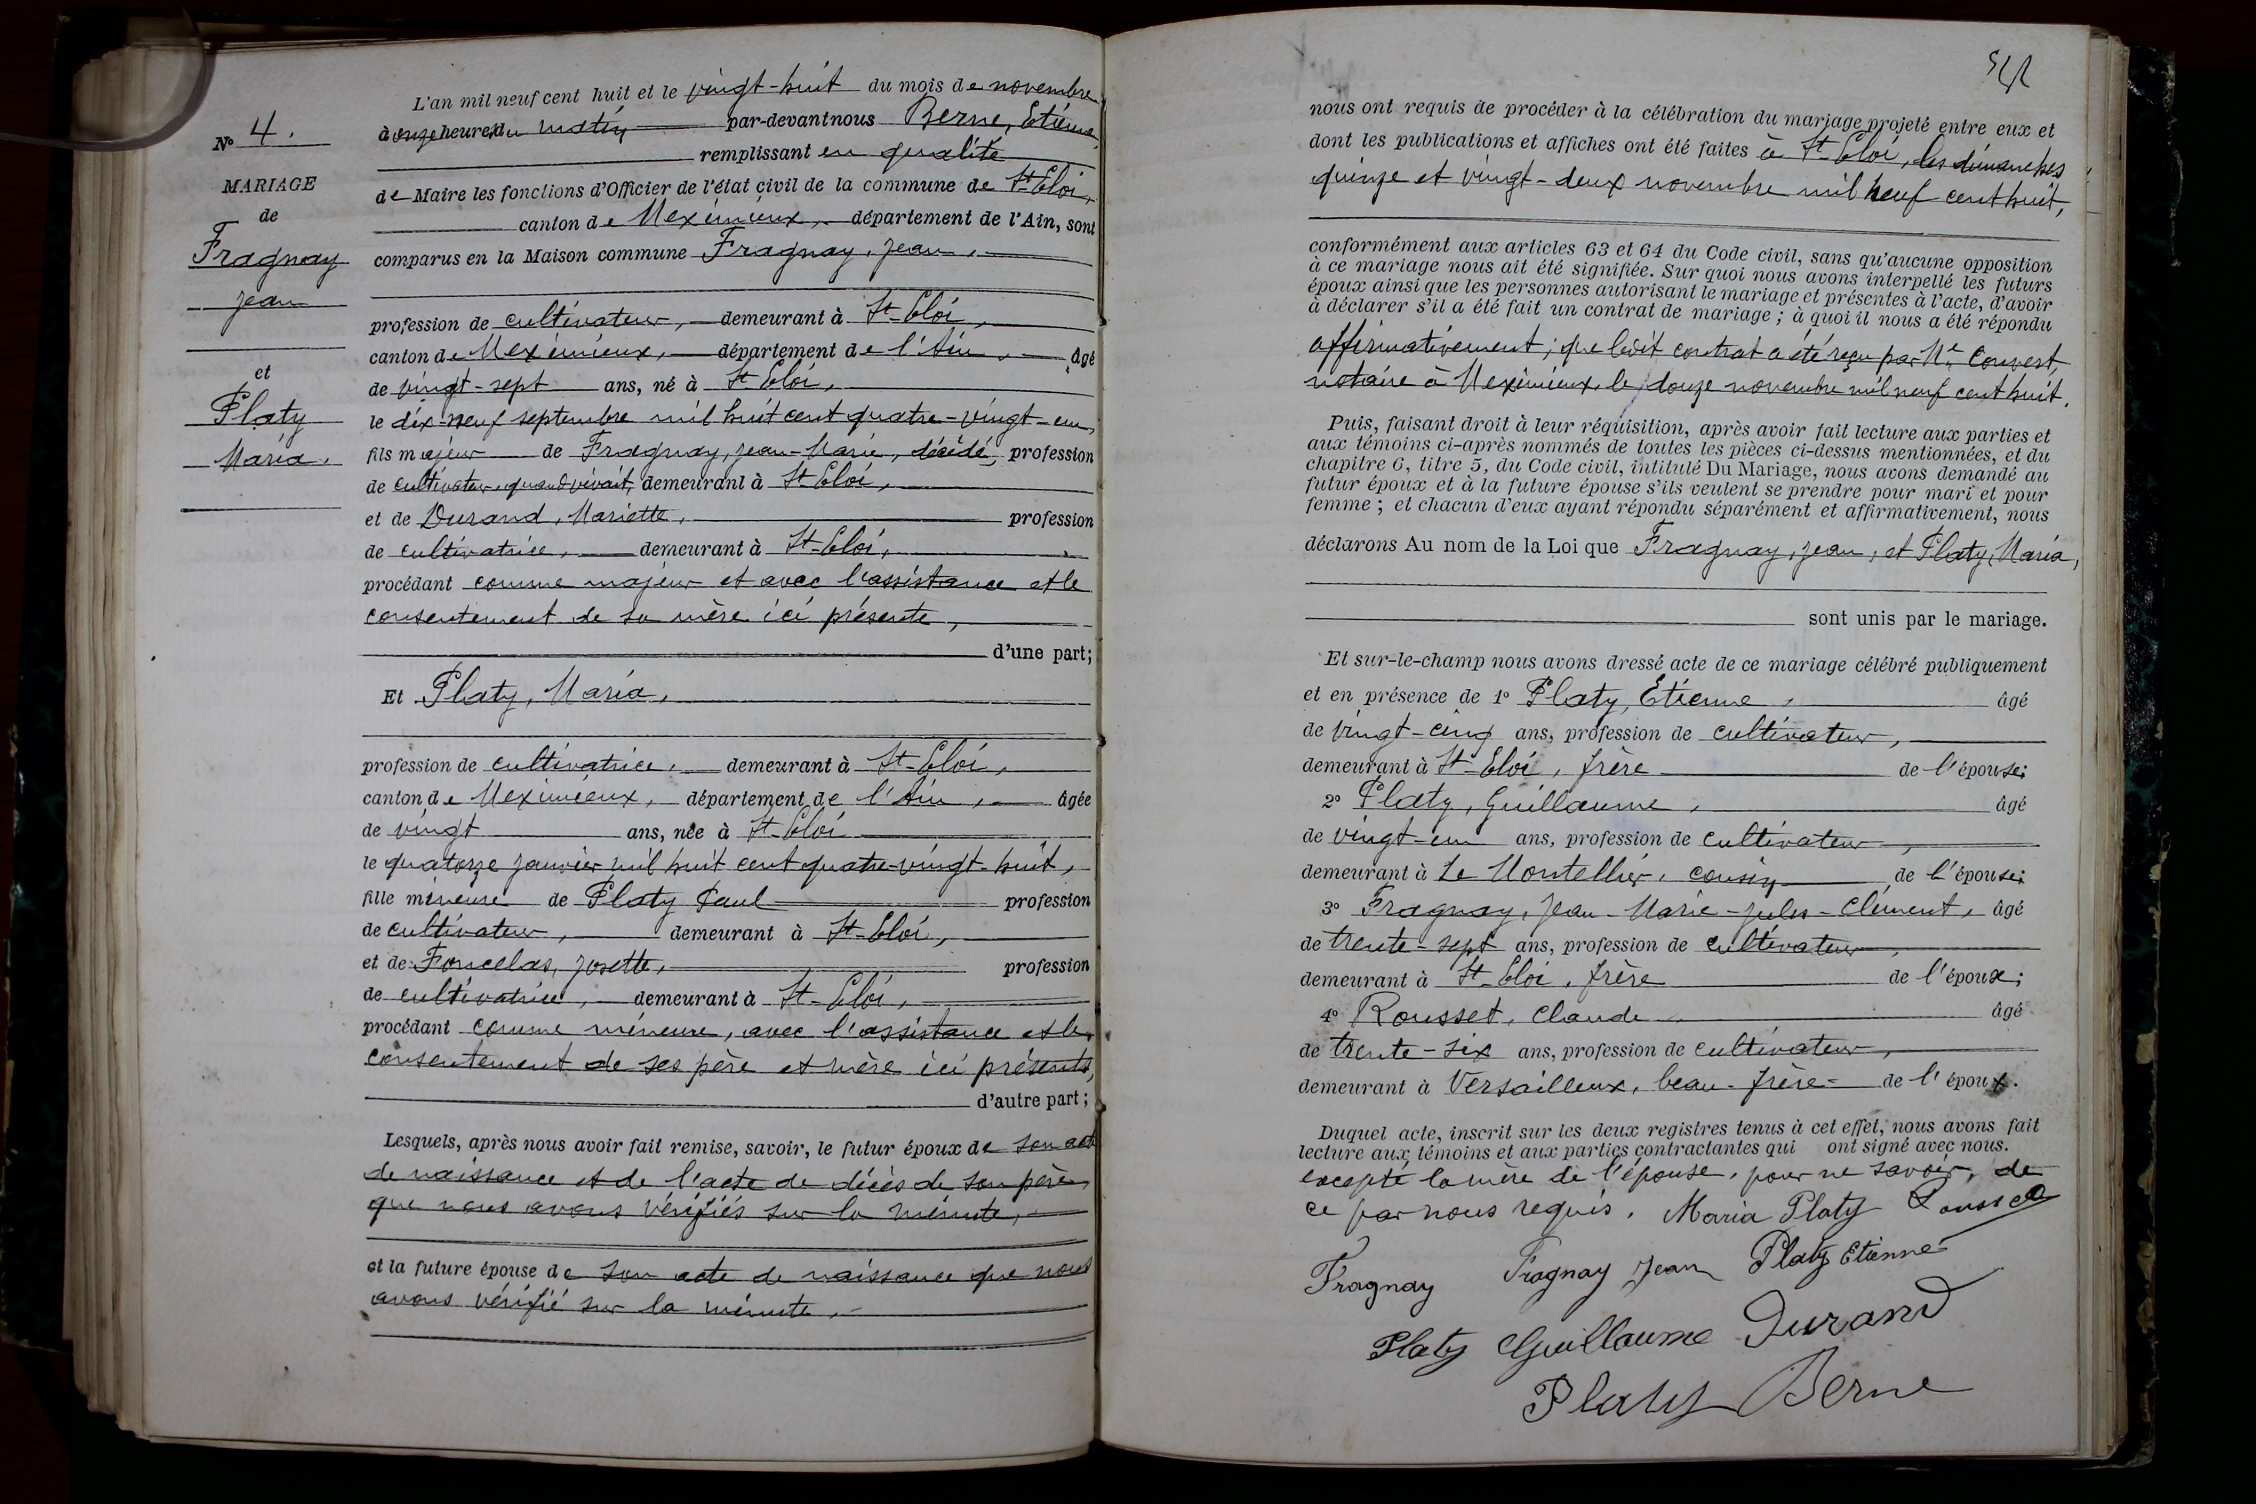 L'an mil neuf cent huit et le vingt-huit du mois de novembre
N° 4.
à onze heures du matin par-devant nous Berne, Etienne,
remplissant en qualité
MARIAGE
de Maire les fonctions d'Officier de l'état civil de la commune de St-Eloi,
de
canton de Meximieux, département de l'Ain, sont
Fragnay
comparus en la Maison commune Fragnay, Jean,
Jean
profession de cultivateur, demeurant à St-Eloi,
canton de Meximieux, département de l'Ain, âgé
et
de vingt-sept ans, né à St Eloi,
Platy
le dix-neuf septembre mil huit cent quatre-vingt-un,
Maria.
fils majeur de Fragnay, Jean-Marie, décédé, profession
de cultivateur, quand vivait, demeurant à St-Eloi,
et de Durand, Mariette, profession
de cultivatrice, demeurant à St-Eloi,
procédant comme majeur et avec l'assistance et le
consentement de sa mère ici présente,
d'une part;
Et Platy, Maria,
profession de cultivatrice, demeurant à St-Eloi,
canton de Meximieux, département de l'Ain, âgée
de vingt ans, née à St-Eloi
le quatorze janvier mil huit cent quatre-vingt-huit,
fille mineure de Platy Paul profession
de cultivateur, demeurant à St-Eloi,
et de Foncelas, Josette, profession
de cultivatrice, demeurant à St-Eloi,
procédant comme mineure, avec l'assistance et le
consentement de ses père et mère ici présents,
d'autre part;
Lesquels, après nous avoir fait remise, savoir, le futur époux de son acte
de naissance et de l'acte de décès de son père,
que nous avons vérifiés sur la minute,
et la future épouse de son acte de naissance que nous
avons vérifié sur la minute.
nous ont requis de procéder à la célébration du mariage projeté entre eux et
dont les publications et affiches ont été faites à St-Eloi, les dimanches
quinze et vingt-deux novembre mil neuf cent huit,
conformément aux articles 63 et 64 du Code civil, sans qu'aucune opposition
à ce mariage nous ait été signifiée. Sur quoi nous avons interpellé les futurs
époux ainsi que les personnes autorisant le mariage et présentes à l'acte, d'avoir
à déclarer s'il a été fait un contrat de mariage; à quoi il nous a été répondu
affirmativement; que ledit contrat a été reçu par Me Convert,
notaire à Meximieux, le douze novembre mil neuf cent huit.
Puis, faisant droit à leur réquisition, après avoir fait lecture aux parties et
aux témoins ci-après nommés de toutes les pièces ci-dessus mentionnées, et du
chapitre 6, titre 5, du Code civil, intitulé Du Mariage, nous avons demandé au
futur époux et à la future épouse s'ils veulent se prendre pour mari et pour
femme; et chacun d'eux ayant répondu séparément et affirmativement, nous
déclarons Au nom de la Loi que Fragnay, Jean, et Platy, Maria,
sont unis par le mariage.
Et sur-le-champ nous avons dressé acte de ce mariage célébré publiquement
et en présence de 1° Platy, Etienne, âgé
de vingt-cinq ans, profession de cultivateur,
demeurant à St-Eloi, frère de l'épouse;
2° Platy, Guillaume, âgé
de vingt-un ans, profession de cultivateur,
demeurant à Le Montellier, cousin de l'épouse;
3° Fragnay, Jean-Marie-Jules-Clément, âgé
de trente-sept ans, profession de cultivateur,
demeurant à St-Eloi, frère de l'époux;
4° Rousset, Claude âgé
de trente-six ans, profession de cultivateur,
demeurant à Versailleux, beau-frère de l'époux.
Duquel acte, inscrit sur les deux registres tenus à cet effet, nous avons fait
lecture aux témoins et aux parties contractantes qui ont signé avec nous.
excepté la mère de l'épouse, pour ne savoir, de
ce par nous requis. Maria Platy Rousset
Fragnay Fragnay Jean Platy Etienne
Platy Guillaume Durand
Platy Berne